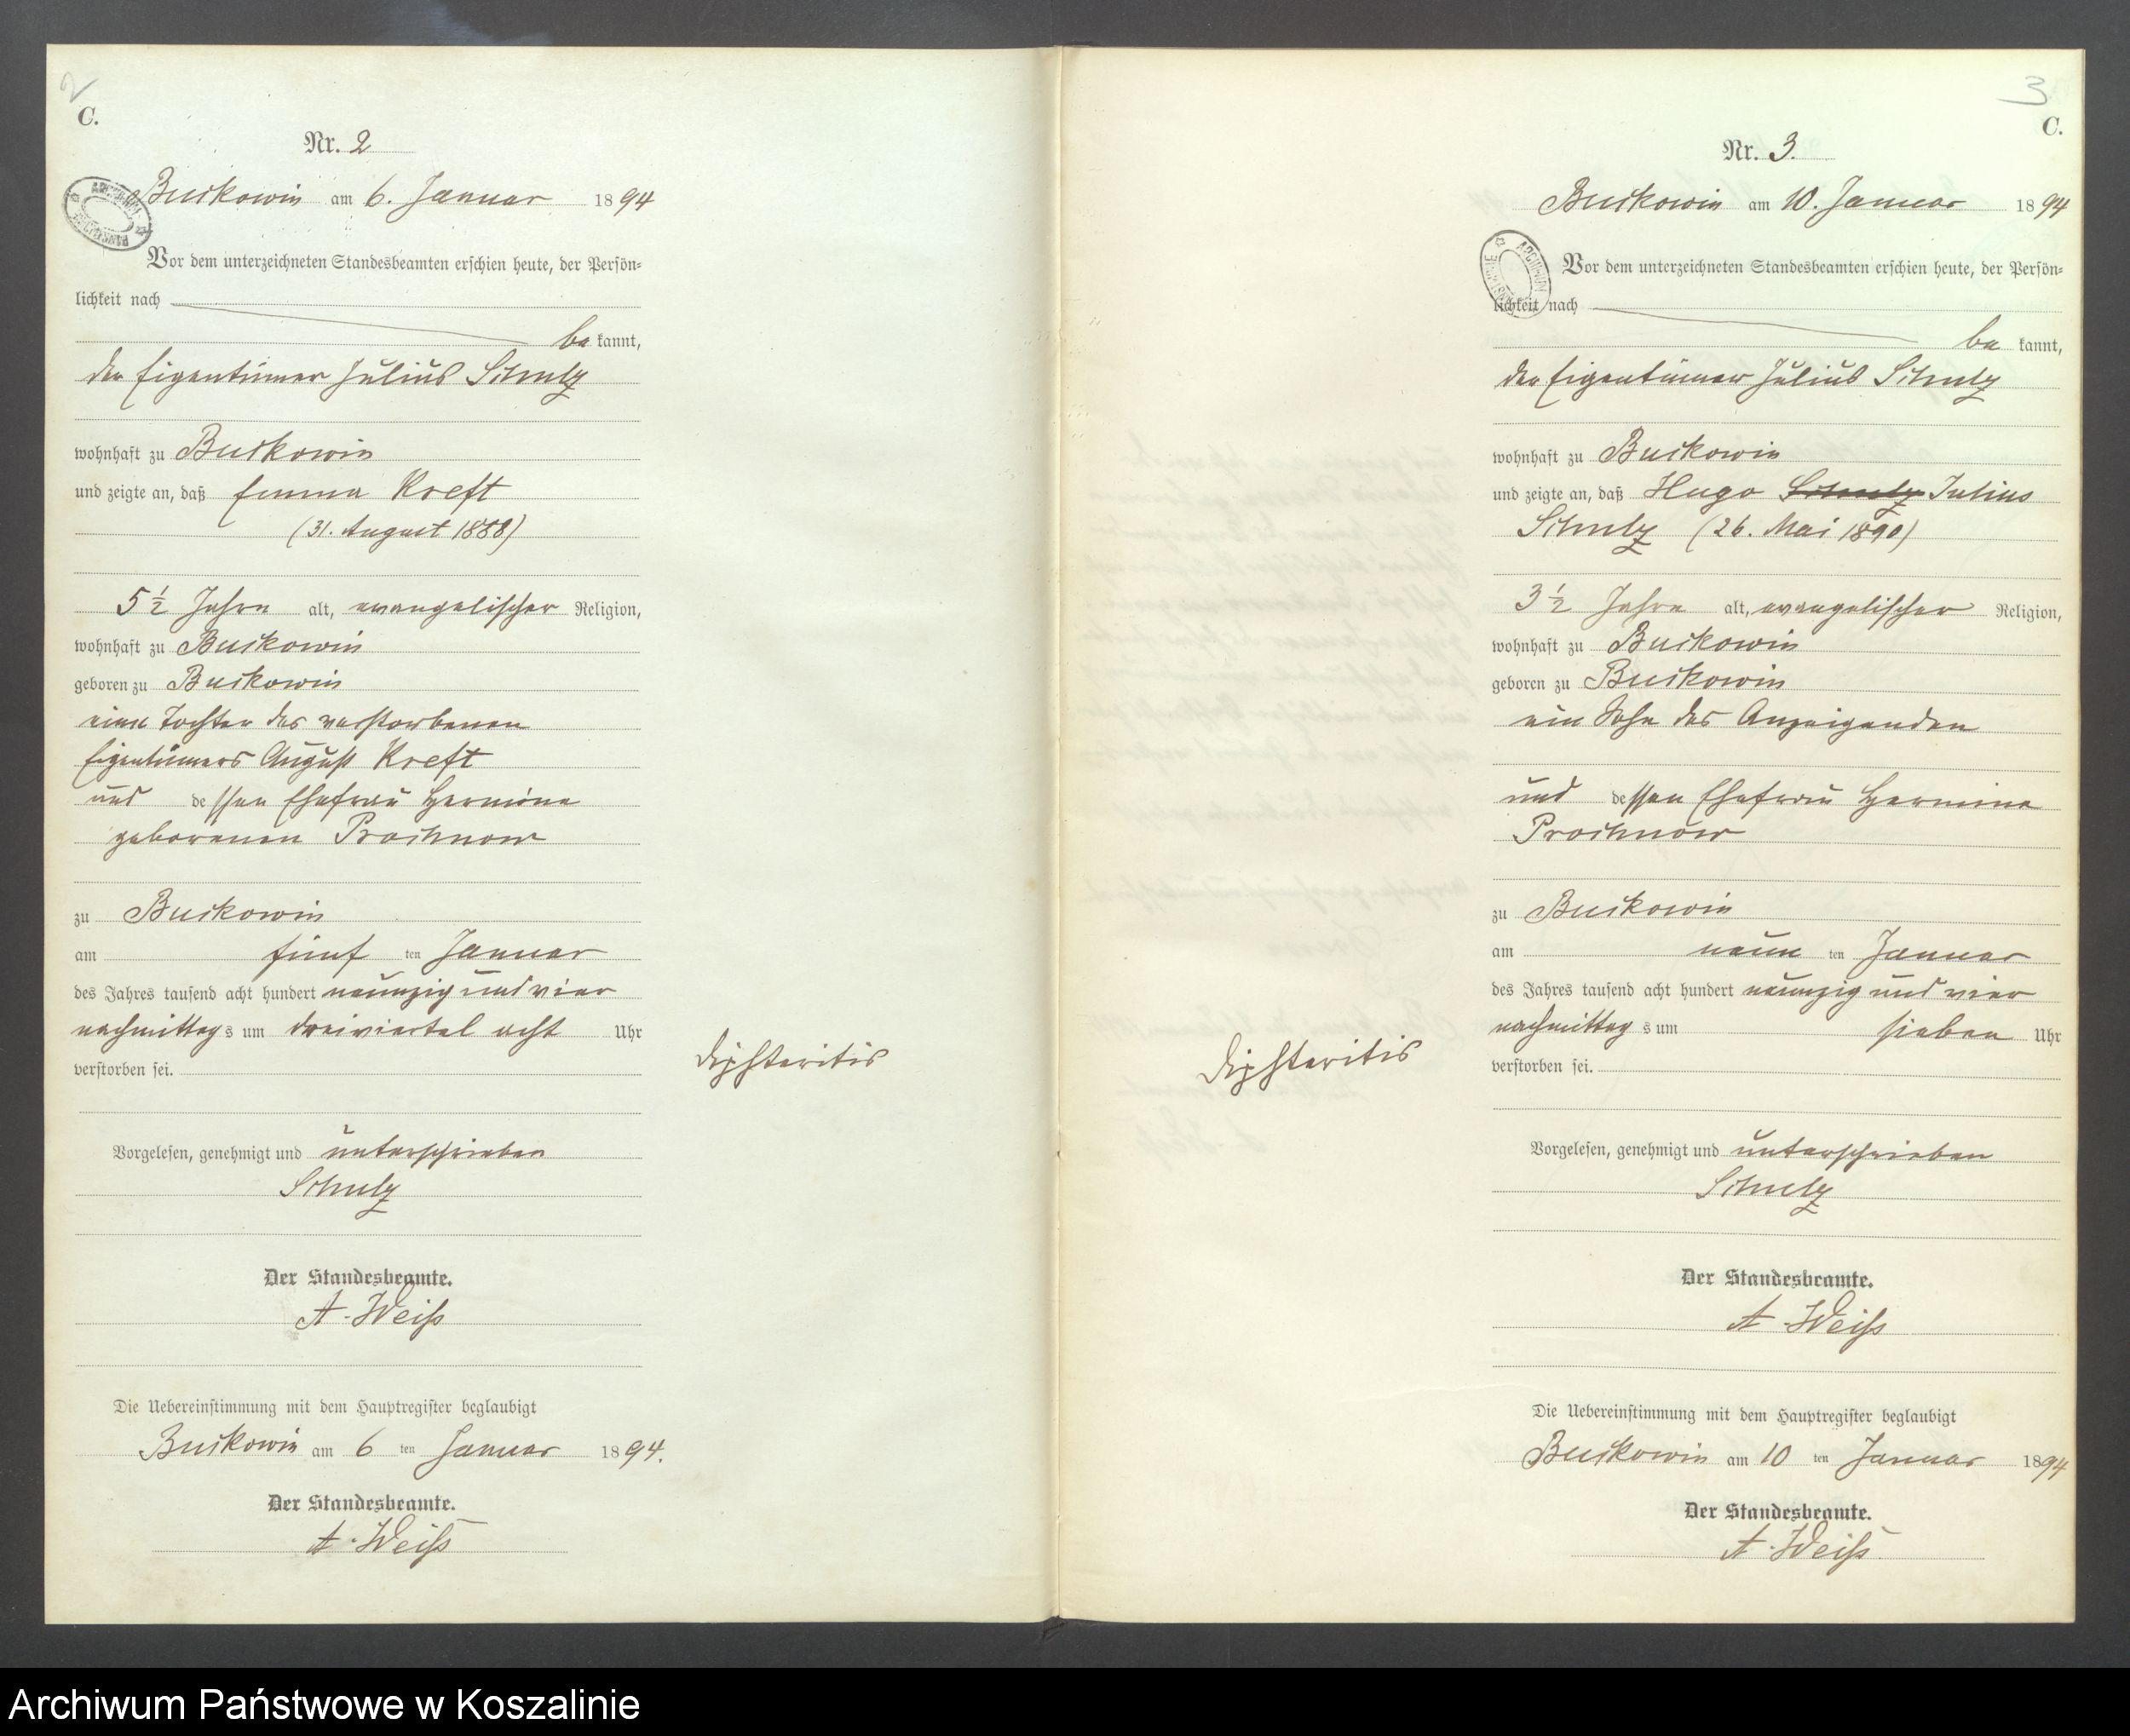 2
C.
Nr. 2
Buckowin am 6. Januar 1894
Vor dem unterzeichneten Standesbeamten erschien heute, der Persön-
lichkeit nach
be kannt,
der Eigentümer Julius Schulz
wohnhaft zu Buckowin
und zeigte an, daß Emma Kreft
(31. August 1888)
5 1/2 Jahre alt, evangelischer Religion,
wohnhaft zu Buckowin
geboren zu Buckowin
eine Tochter des verstorbenen
Eigentümers August Kreft
und dessen Ehefrau Hermine
geborenen Prochnow
zu Buckowin
am fünf ten Januar
des Jahres tausend acht hundert neunzig und vier
nachmittags um dreiviertel acht Uhr
verstorben sei.
Diphteritis
Vorgelesen, genehmigt und unterschrieben
Schulz
Der Standesbeamte.
A. Weiß
Die Uebereinstimmung mit dem Hauptregister beglaubigt
Buckowin am 6 ten Januar 1894.
Der Standesbeamte.
A. Weiß
3
C.
Nr. 3.
Buckowin am 10. Januar 1894
ARCHIWUM
Vor dem unterzeichneten Standesbeamten erschien heute, der Persön-
lichkeit nach
be kannt,
der Eigentümer Julius Schulz
wohnhaft zu Buckowin
und zeigte an, daß Hugo Schulz Julius
Schulz (26. Mai 1890)
3 1/2 Jahre alt, evangelischer Religion,
wohnhaft zu Buckowin
geboren zu Buckowin
ein Sohn des Anzeigenden
und dessen Ehefrau Hermine
Prochnow
zu Buckowin
am neun ten Januar
des Jahres tausend acht hundert neunzig und vier
nachmittags um sieben Uhr
verstorben sei.
Diphteritis
Vorgelesen, genehmigt und unterschrieben
Schulz
Der Standesbeamte.
A. Weiß
Die Uebereinstimmung mit dem Hauptregister beglaubigt
Buckowin am 10 ten Januar 1894
Der Standesbeamte.
A. Weiß
Archiwum Państwowe w Koszalinie